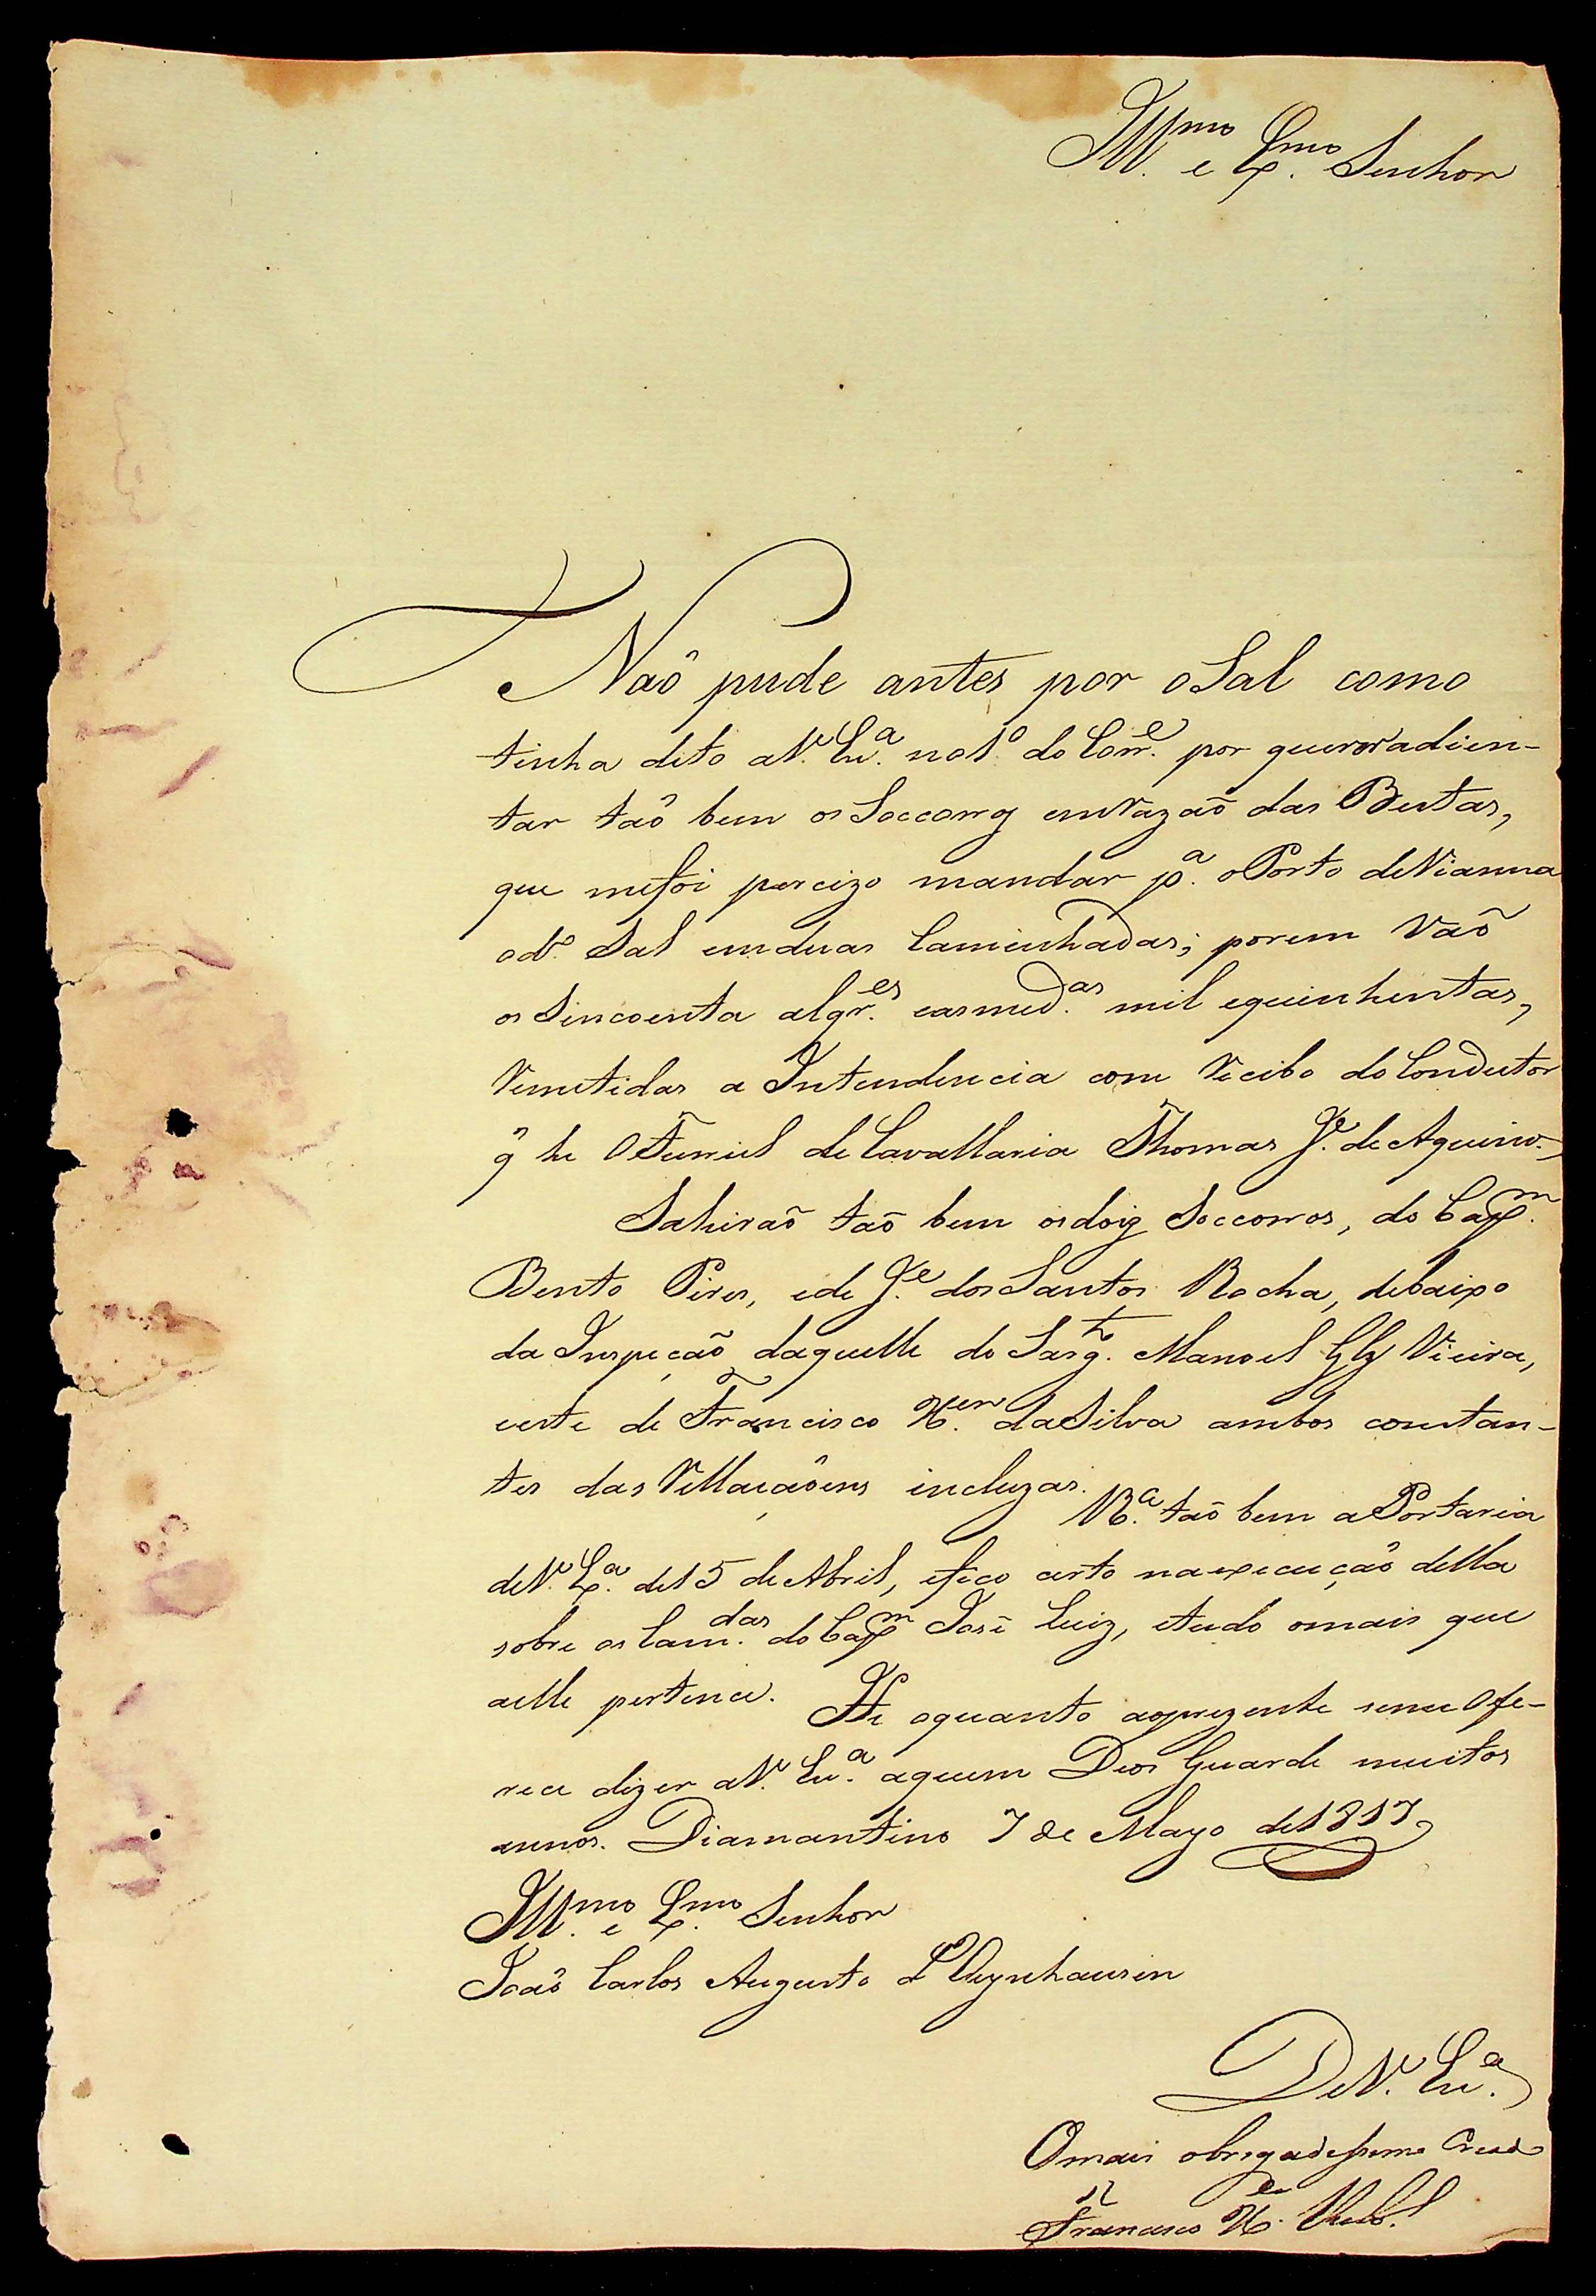 Ill.mo e Ex.mo Senhor
Naõ pude antes por o Sal como
tinha dito a V. Ex.a no 1.o do Corr.e por querer adien-
tar taõ bem os Soccorros em Razaõ das Bestas,
que me foi percizo mandar p.a o Porto de Vianna
o d.o Sal em duas Caminhadas; porem Vaõ
os Sincoenta alqr.es e as med.as mil e quinhentas,
Remetidas a Intendencia com Recibo do Condutor
q̃ he O Furriel de Cavallaria Thomas J.e de Aquino.
Sahiraõ taõ bem os doiz Soccorros, do Cap.m
Bento Pires, e de J.e dos Santos Rocha, debaixo
da Inspeçaõ daquelle do Sarg.to Manoel Glz Vieira,
e este de Francisco X.er da Silva ambos constan-
tes das Rellaçaõens incluzas.
R.a taõ bem a Portaria
de V. Ex.a de 15 de Abril, e fico certo na execuçaõ della
sobre as Cam.das do Cap.m José Luiz, e tudo o mais que
a elle pertence. He o quanto ao prezente se me Ofe-
rece dizer a V. Ex.a a quem Deos Guarde muitos
annos. Diamantino 7 de Mayo de 1817
Ill.mo e Ex.mo Senhor
Joaõ Carlos Augusto d'Oeynhausen
De V. Ex.a
O mais obrigadissimo Creado
Francisco X.er